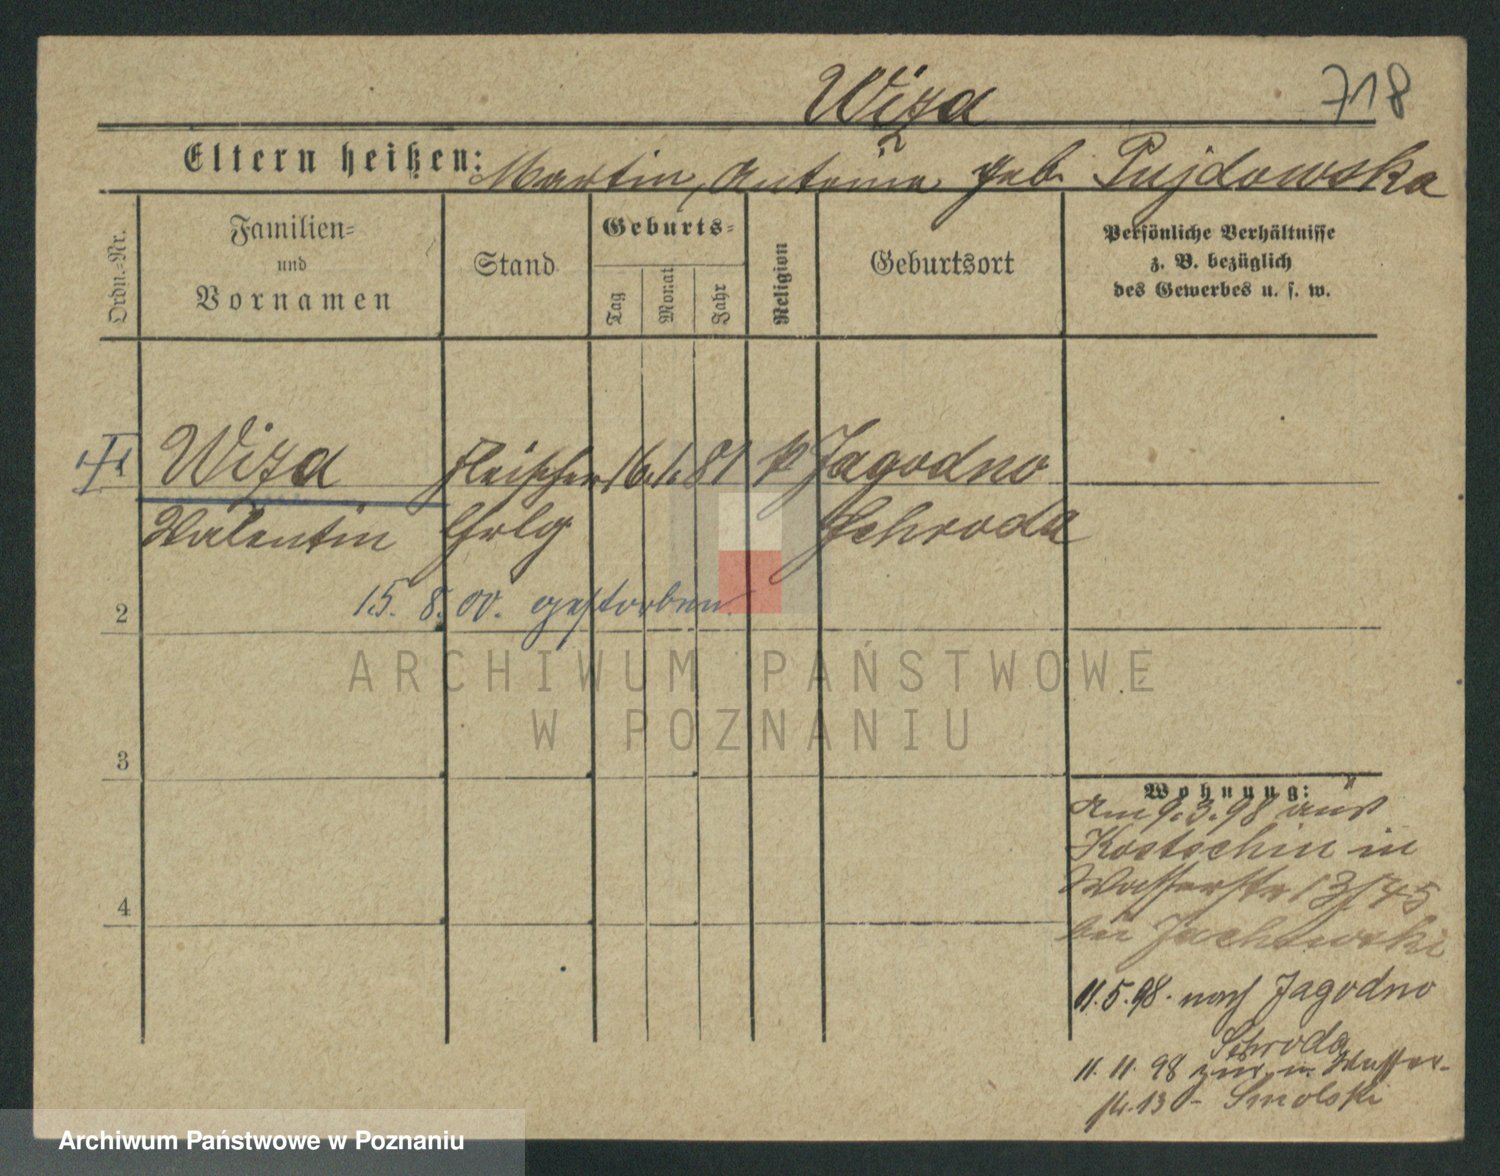 Wiza 718
Eltern heißen: Martin, Antonina geb. Pujdowska
Ordn.-Nr.
Familien-
und
Vornamen
Stand
Geburts-
Tag
Monat
Jahr
Religion
Geburtsort
Persönliche Verhältnisse
z. B. bezüglich
des Gewerbes u. s. w.
Wiza Fleischer 16. 1. 81 k Jagodno
Valentin Lehrlg Schroda
15. 8. 00. gestorben.
2
ARCHIWUM PAŃSTWOWE
W POZNANIU
3
Wohnung:
Am 9.3.98 aus
Kostschin in
Wasserstr 13/
4
bei
11.5.98. nach Jagodno
Schroda
11. 11. 98 zur. in Wasser-
str. 13 - Smolski
Archiwum Państwowe w Poznaniu